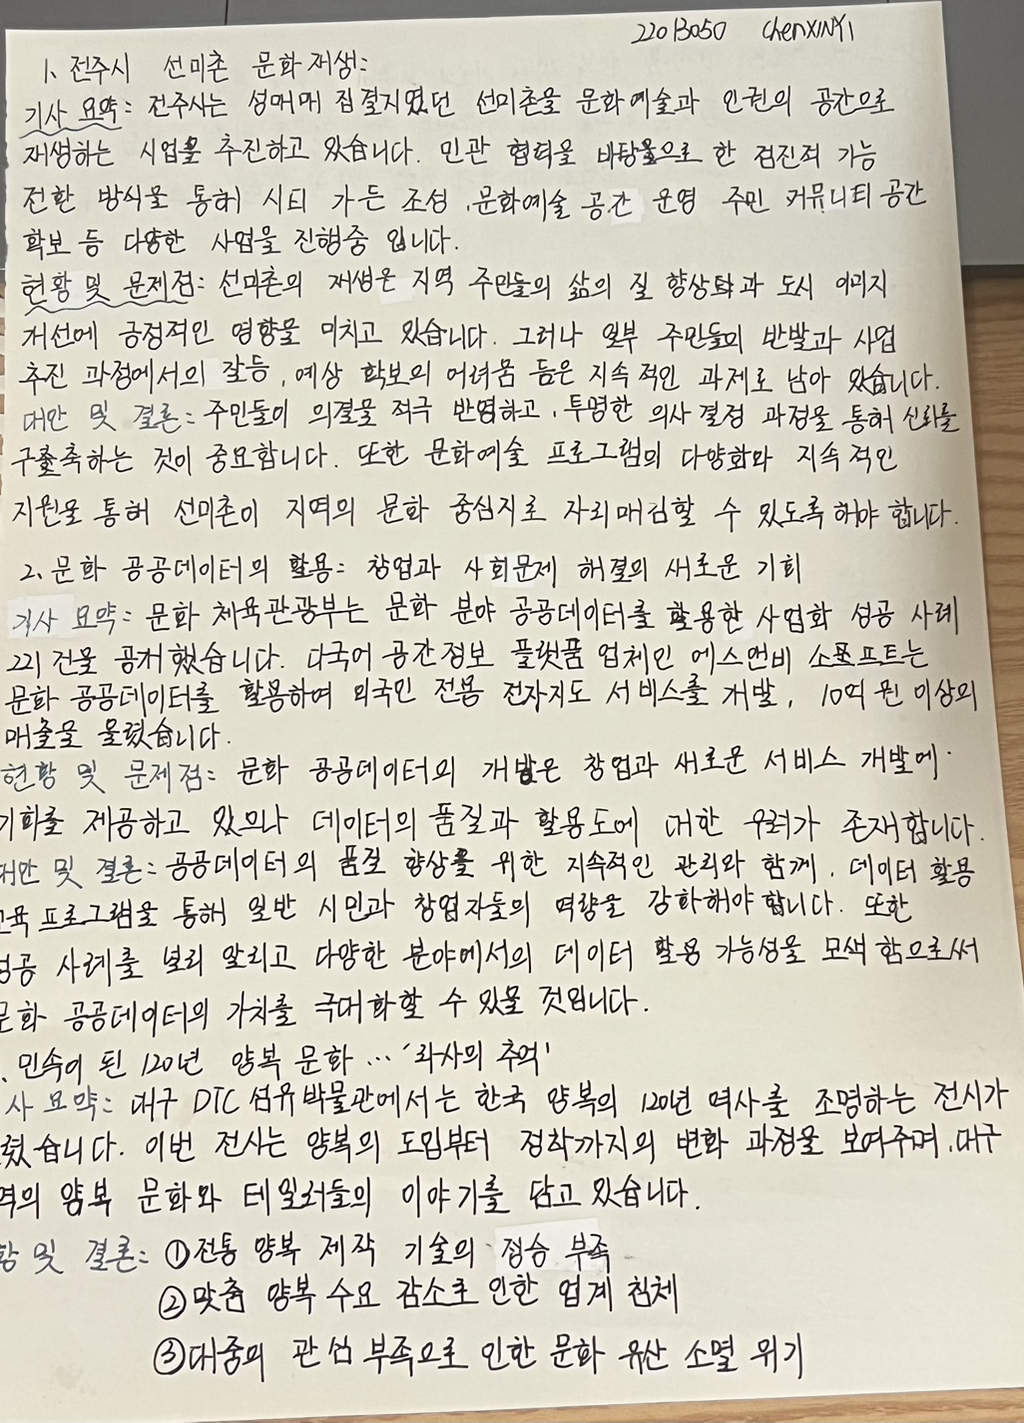 22013050 ChenXINYI
1. 전주시 선미촌 문화재생:
기사 요약: 전주시는 성매매 집결지였던 선미촌을 문화예술과 인권의 공간으로
재생하는 사업을 추진하고 있습니다. 민관 협력을 바탕으로 한 점진적 기능
전환 방식을 통해 시티 가든 조성, 문화예술 공간 운영 주민 커뮤니티 공간
확보 등 다양한 사업을 진행중 입니다.
현황 및 문제점: 선미촌의 재생은 지역 주민들의 삶의 질 향상과 도시 이미지
개선에 긍정적인 영향을 미치고 있습니다. 그러나 일부 주민들의 반발과 사업
추진 과정에서의 갈등, 예상 확보의 어려움 등은 지속적인 과제로 남아 있습니다.
대안 및 결론: 주민들이 의결을 적극 반영하고, 투명한 의사 결정 과정을 통해 신뢰를
구축하는 것이 중요합니다. 또한 문화예술 프로그램의 다양화와 지속적인
지원을 통해 선미촌이 지역의 문화 중심지로 자리매김할 수 있도록 해야 합니다.
2. 문화 공공데이터의 활용: 창업과 사회문제 해결의 새로운 기회
기사 요약: 문화 체육관광부는 문화 분야 공공데이터를 활용한 사업화 성공 사례
22건을 공개했습니다. 다국어 공간정보 플랫폼 업체인 에스앤비 소프트는
문화 공공데이터를 활용하여 외국인 전용 전자지도 서비스를 개발, 10억 원 이상의
매출을 올렸습니다.
현황 및 문제점: 문화 공공데이터의 개방은 창업과 새로운 서비스 개발에
기회를 제공하고 있으나 데이터의 품질과 활용도에 대한 우려가 존재합니다.
대안 및 결론: 공공데이터의 품질 향상을 위한 지속적인 관리와 함께, 데이터 활용
교육 프로그램을 통해 일반 시민과 창업자들의 역량을 강화해야 합니다. 또한
성공 사례를 널리 알리고 다양한 분야에서의 데이터 활용 가능성을 모색함으로써
문화 공공데이터의 가치를 극대화할 수 있을 것입니다.
. 민속이 된 120년 양복 문화 … '라사의 추억'
사 요약: 대구 DTC 섬유박물관에서는 한국 양복의 120년 역사를 조명하는 전시가
렸습니다. 이번 전시는 양복의 도입부터 정착까지의 변화 과정을 보여주며, 대구
역의 양복 문화와 테일러들의 이야기를 담고 있습니다.
황 및 결론: ① 전통 양복 제작 기술의 전승 부족
② 맞춤 양복 수요 감소로 인한 업계 침체
③ 대중의 관심 부족으로 인한 문화 유산 소멸 위기